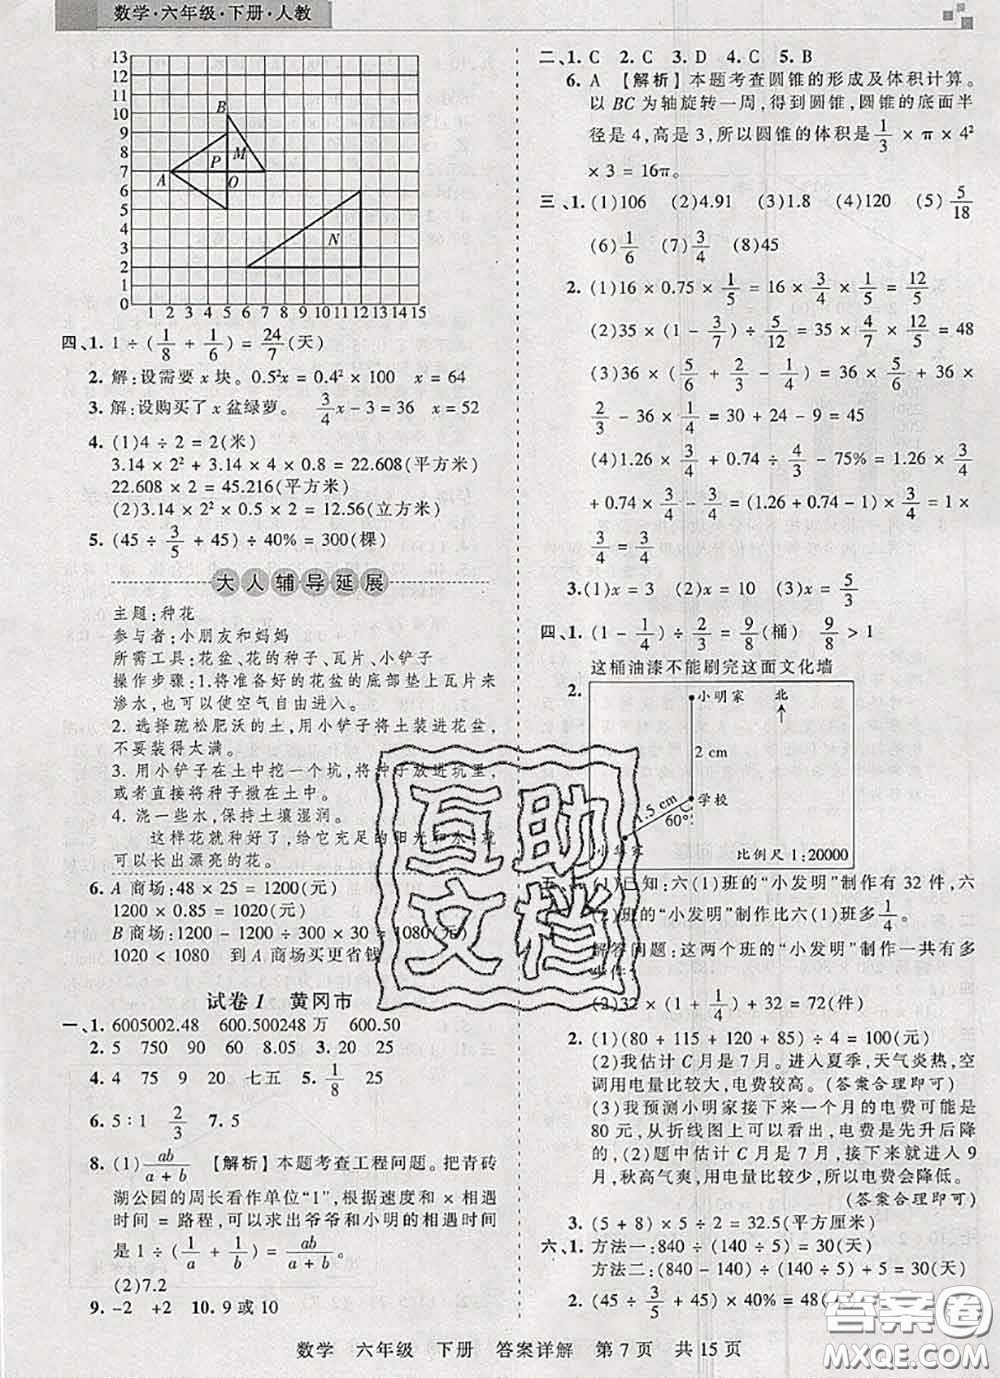 数学·六年级·下册·人教
13
12
11
10
9
8
7
6
5
4
3
2
1
0
B
M
P
A
O
N
1 2 3 4 5 6 7 8 9 10 11 12 13 14 15
四、1. 1 ÷ (1/8 + 1/6) = 24/7(天)
2. 解:设需要 x 块。0.5²x = 0.4² × 100 x = 64
3. 解:设购买了 x 盆绿萝。 3/4x − 3 = 36 x = 52
4. (1)4 ÷ 2 = 2(米)
3.14 × 2² + 3.14 × 4 × 0.8 = 22.608(平方米)
22.608 × 2 = 45.216(平方米)
(2)3.14 × 2² × 0.5 × 2 = 12.56(立方米)
5. (45 ÷ 3/5 + 45) ÷ 40% = 300(棵)
大人辅导延展
主题:种花
参与者:小朋友和妈妈
所需工具:花盆、花的种子、瓦片、小铲子
操作步骤:1. 将准备好的花盆的底部垫上瓦片来
渗水,也可以使空气自由进入。
2. 选择疏松肥沃的土,用小铲子将土装进花盆,
不要装得太满。
3. 用小铲子在土中挖一个坑,将种子放进坑里,
或者直接将种子撒在土中。
4. 浇一些水,保持土壤湿润。
这样花就种好了,给它充足的阳光和水,就
可以长出漂亮的花。
6. A 商场:48 × 25 = 1200(元)
1200 × 0.85 = 1020(元)
B 商场:1200 − 1200 ÷ 300 × 30 = 1080(元)
1020 < 1080 到 A 商场买更省钱
试卷 1 黄冈市
一、1. 6005002.48 600.500248 万 600.50
2. 5 750 90 60 8.05 3. 20 25
4. 4 75 9 20 七五 5. 1/8 25
6. 5∶1 2/3 7. 5
8. (1)ab/(a + b) 【解析】本题考查工程问题。把青砖
湖公园的周长看作单位“1”,根据速度和 × 相遇
时间 = 路程,可以求出爷爷和小明的相遇时间
是 1 ÷ (1/a + 1/b) = ab/(a + b)。
(2)7.2
9. −2 +2 10. 9 或 10
二、1. C 2. C 3. D 4. C 5. B
6. A 【解析】本题考查圆锥的形成及体积计算。
以 BC 为轴旋转一周,得到圆锥,圆锥的底面半
径是 4,高是 3,所以圆锥的体积是 1/3 × π × 4²
× 3 = 16π。
三、1. (1)106 (2)4.91 (3)1.8 (4)120 (5)5/18
(6)1/6 (7)3/4 (8)45
2. (1)16 × 0.75 × 1/5 = 16 × 3/4 × 1/5 = 12/5
(2)35 × (1 − 3/7) ÷ 5/12 = 35 × 4/7 × 12/5 = 48
(3)36 × (5/6 + 2/3 − 1/4) = 36 × 5/6 + 36 ×
2/3 − 36 × 1/4 = 30 + 24 − 9 = 45
(4)1.26 × 3/4 + 0.74 ÷ 4/3 − 75% = 1.26 × 3/4
+ 0.74 × 3/4 − 3/4 = (1.26 + 0.74 − 1) × 3/4 = 1 ×
3/4 = 3/4
3. (1)x = 3 (2)x = 10 (3)x = 5/3
四、1. (1 − 1/4) ÷ 2/3 = 9/8(桶) 9/8 > 1
这桶油漆不能刷完这面文化墙
2.
小明家
北
2 cm
学校
1.5 cm
60°
比例尺 1∶20000
(1)已知:六(1)班的“小发明”制作有 32 件,六
(2)班的“小发明”制作比六(1)班多 1/4。
解答问题:这两个班的“小发明”制作一共有多
少件?
(2)32 × (1 + 1/4) + 32 = 72(件)
2. (1)(80 + 115 + 120 + 85) ÷ 4 = 100(元)
(2)我估计 C 月是 7 月。进入夏季,天气炎热,空
调用电量比较大,电费较高。(答案合理即可)
(3)我预测小明家接下来一个月的电费可能是
80 元,从折线图上可以看出,电费是先升后降
的,(2)题中估计 C 月是 7 月,所以接下来就进入 9
月,秋高气爽,用电量比较小,所以电费会降低。
(答案合理即可)
3. (5 + 8) × 5 ÷ 2 = 32.5(平方厘米)
六、1. 方法一:840 ÷ (140 ÷ 5) = 30(天)
方法二:(840 − 140) ÷ (140 ÷ 5) + 5 = 30(天)
2. (45 ÷ 3/5 + 45) × 40% = 48
互助
文档
答案圈
MXQE.COM
数学 六年级 下册 答案详解 第 7 页 共 15 页